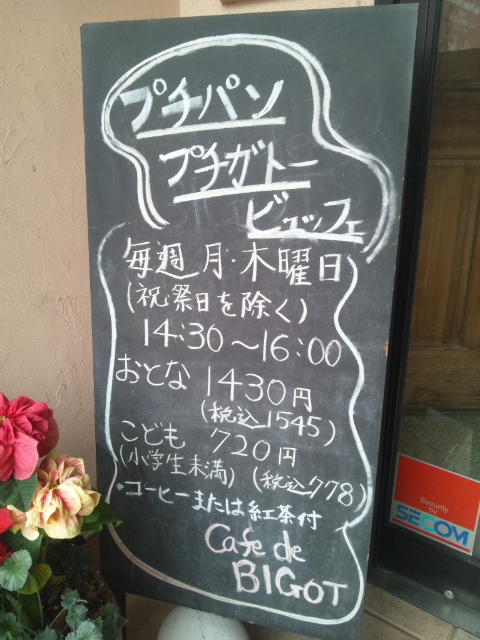 プチパン
プチガトー
ビュッフェ
毎週 月・木曜日
(祝祭日を除く)
14:30～16:00
おとな 1430円
(税込1545)
こども 720円
(小学生未満) (税込778)
・コーヒーまたは紅茶付
Cafe de
BIGOT
Security
by
SECOM